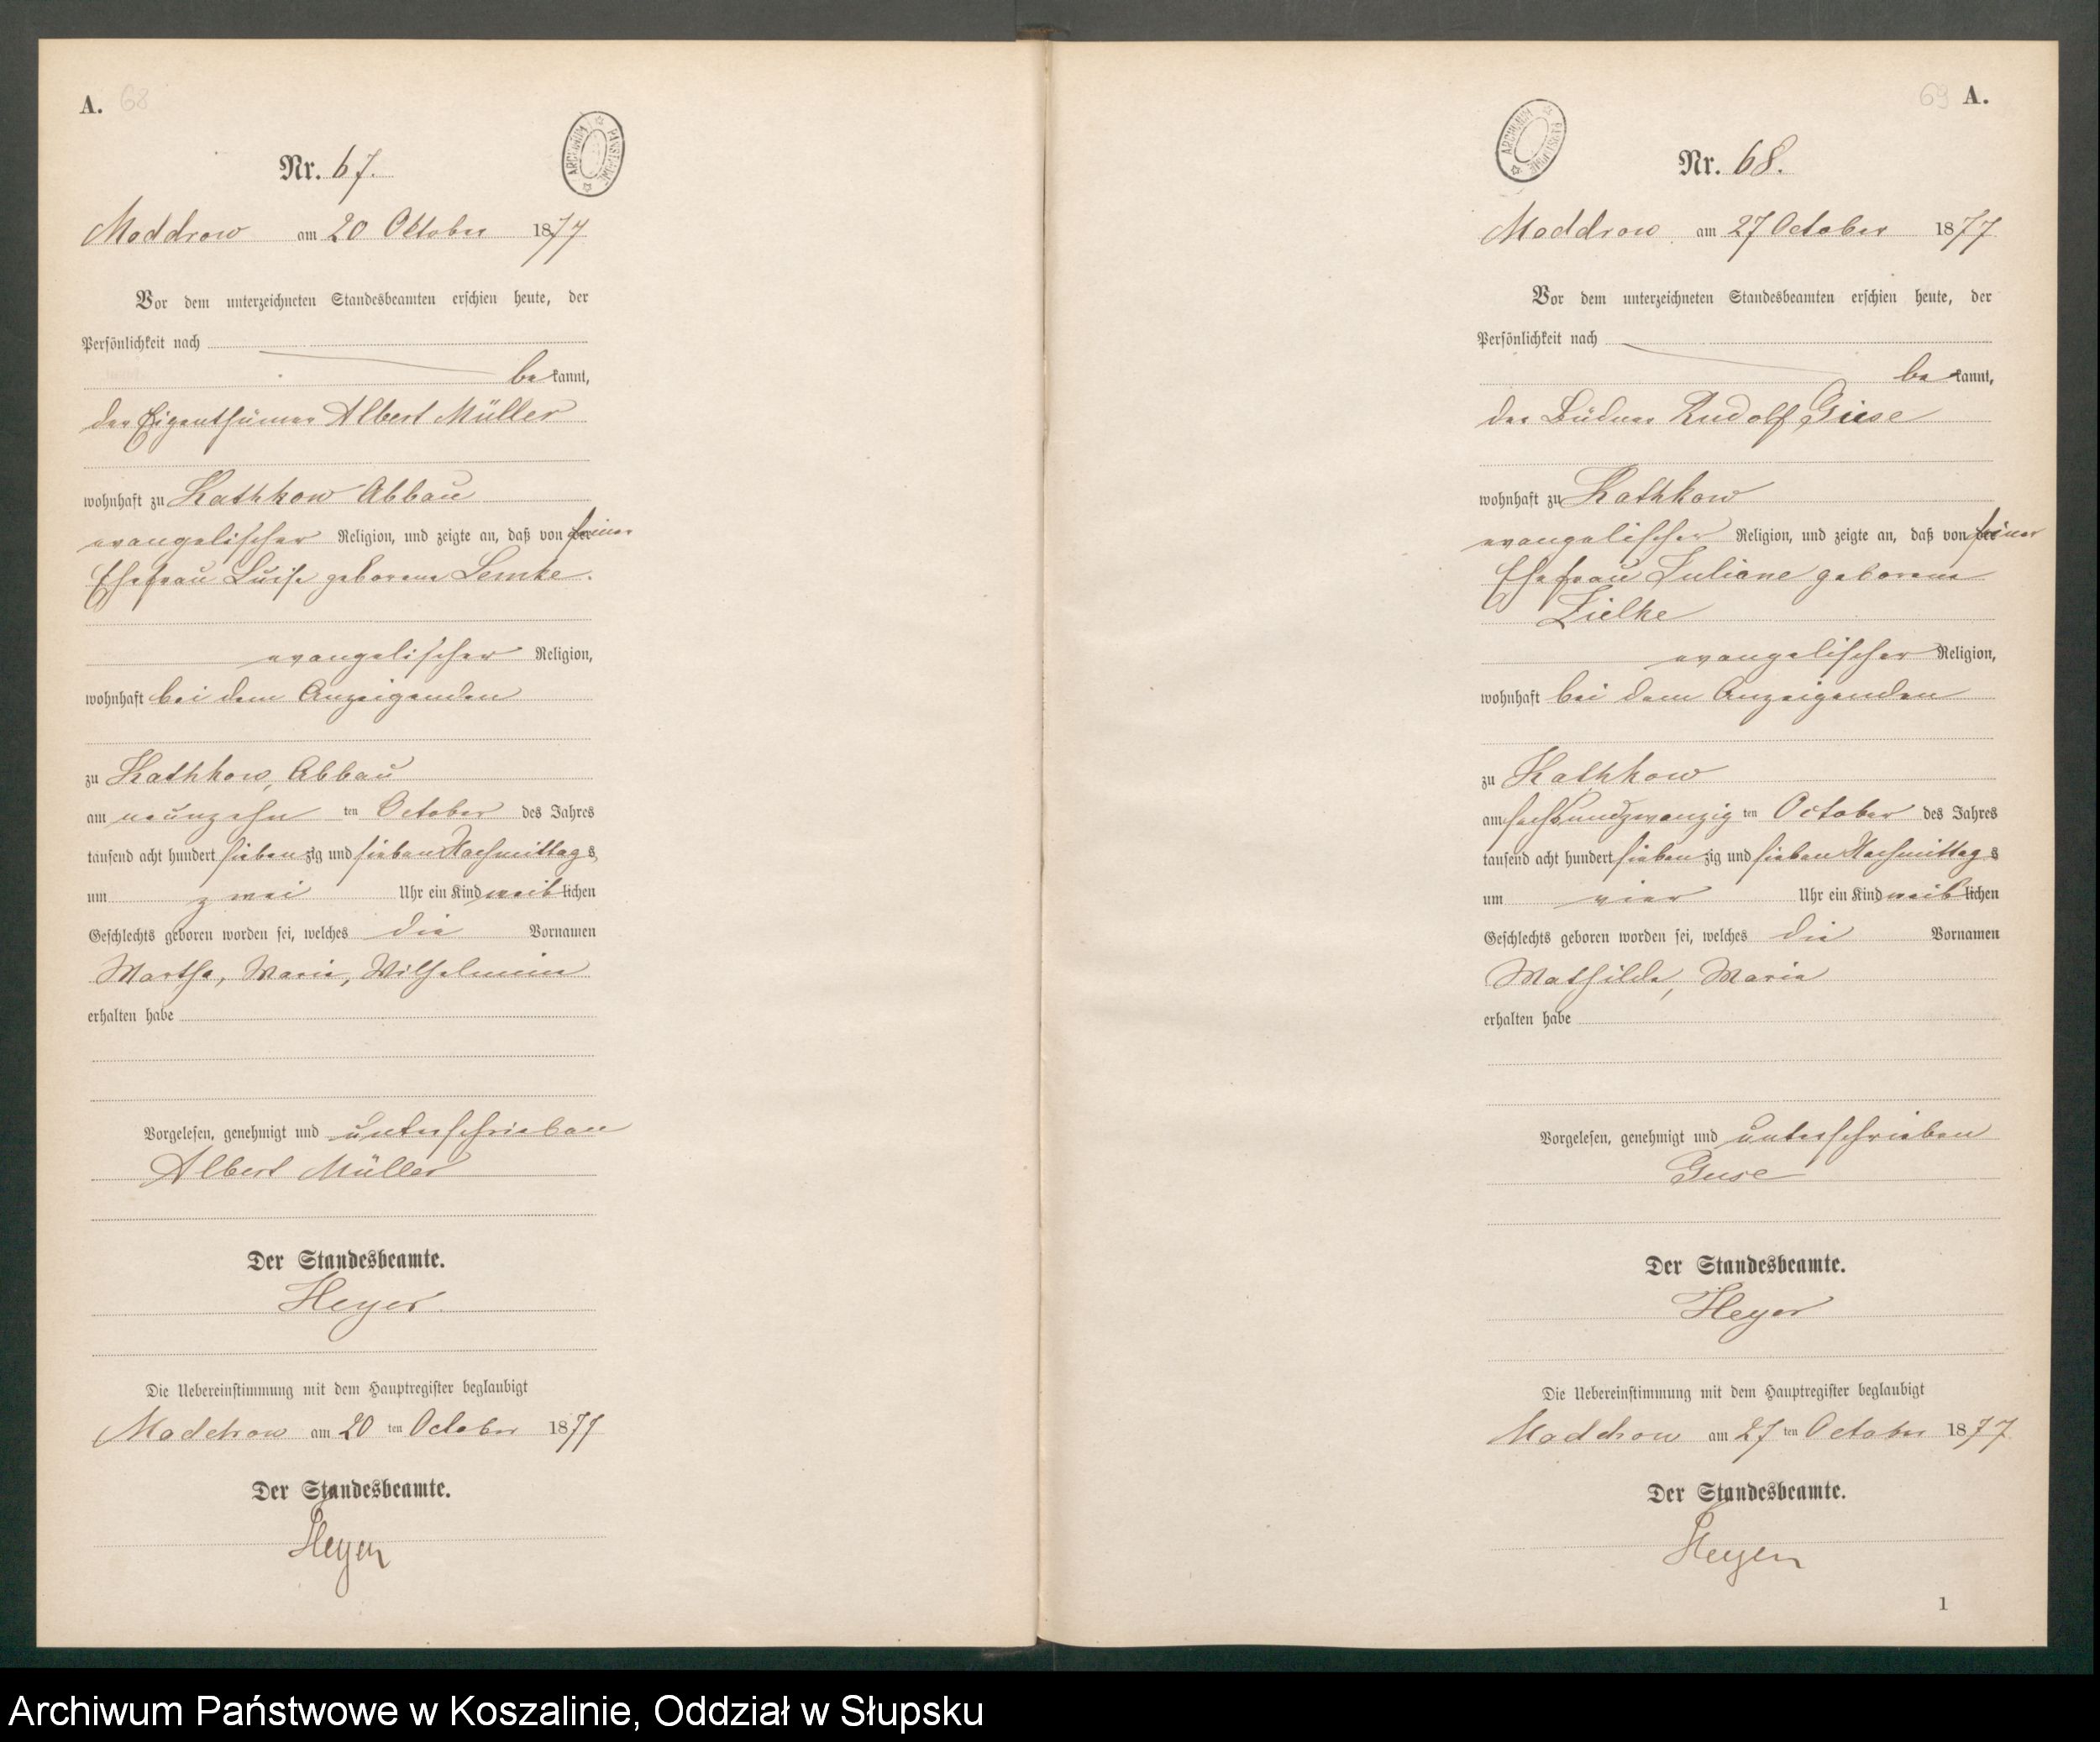 A. 68
ARCHIWUM PAŃSTWOWE
Nr. 67.
Moddrow am 20 Oktober 1877
Vor dem unterzeichneten Standesbeamten erschien heute, der
Persönlichkeit nach
bekannt,
der Eigenthümer Albert Müller
wohnhaft zu Kathkow Abbau
evangelischer Religion, und zeigte an, daß von der seiner
Ehefrau Luise geborene Lemke.
evangelischer Religion,
wohnhaft bei dem Anzeigenden
zu Kathkow, Abbau
am neunzehn ten October des Jahres
tausend acht hundert siebenzig und sieben Nachmittags
um zwei Uhr ein Kind weiblichen
Geschlechts geboren worden sei, welches die Vornamen
Martha, Marie, Wilhelmine
erhalten habe
Vorgelesen, genehmigt und unterschrieben
Albert Müller
Der Standesbeamte.
Heyer.
Die Uebereinstimmung mit dem Hauptregister beglaubigt
Moddrow am 20 ten October 1877
Der Standesbeamte.
Heyer
69 A.
ARCHIWUM PAŃSTWOWE
Nr. 68.
Moddrow am 27 October 1877
Vor dem unterzeichneten Standesbeamten erschien heute, der
Persönlichkeit nach
bekannt,
der Büdner Rudolf Giese
wohnhaft zu Kathkow
evangelischer Religion, und zeigte an, daß von der seiner
Ehefrau Juliane geborene
Zielke
evangelischer Religion,
wohnhaft bei dem Anzeigenden
zu Kathkow
am sechsundzwanzig ten October des Jahres
tausend acht hundert siebenzig und sieben Nachmittags
um vier Uhr ein Kind weiblichen
Geschlechts geboren worden sei, welches die Vornamen
Mathilde, Marie
erhalten habe
Vorgelesen, genehmigt und unterschrieben
Guse
Der Standesbeamte.
Heyer
Die Uebereinstimmung mit dem Hauptregister beglaubigt
Moddrow am 27 ten October 1877
Der Standesbeamte.
Heyer
1
Archiwum Państwowe w Koszalinie, Oddział w Słupsku